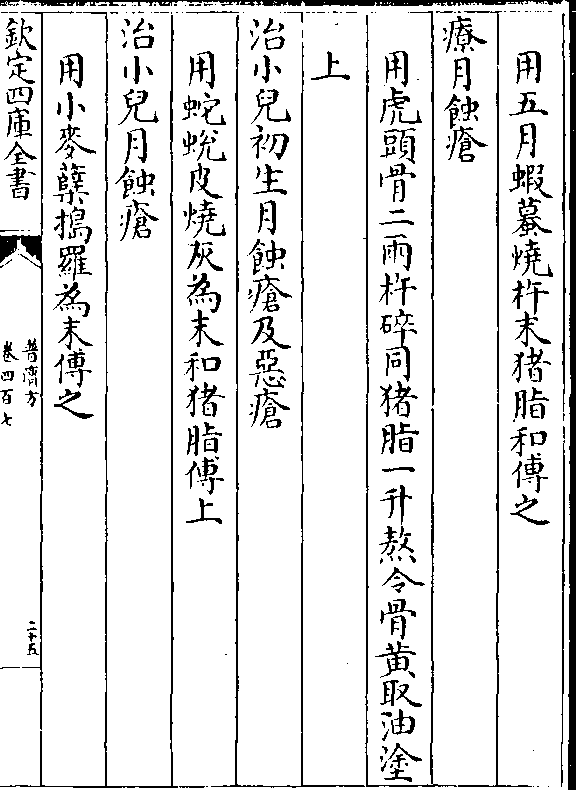 用五月蝦蟇燒杵末猪脂和傅之
療月蝕瘡
用虎頭骨二兩杵碎同猪脂一升熬令骨黄取油塗
上
治小兒初生月蝕瘡及惡瘡
用蛇蛻皮燒灰為末和猪脂傅上
治小兒月蝕瘡
用小麥蘖搗羅為末傅之
欽定四庫全書
普濟方
卷四百七
二十五